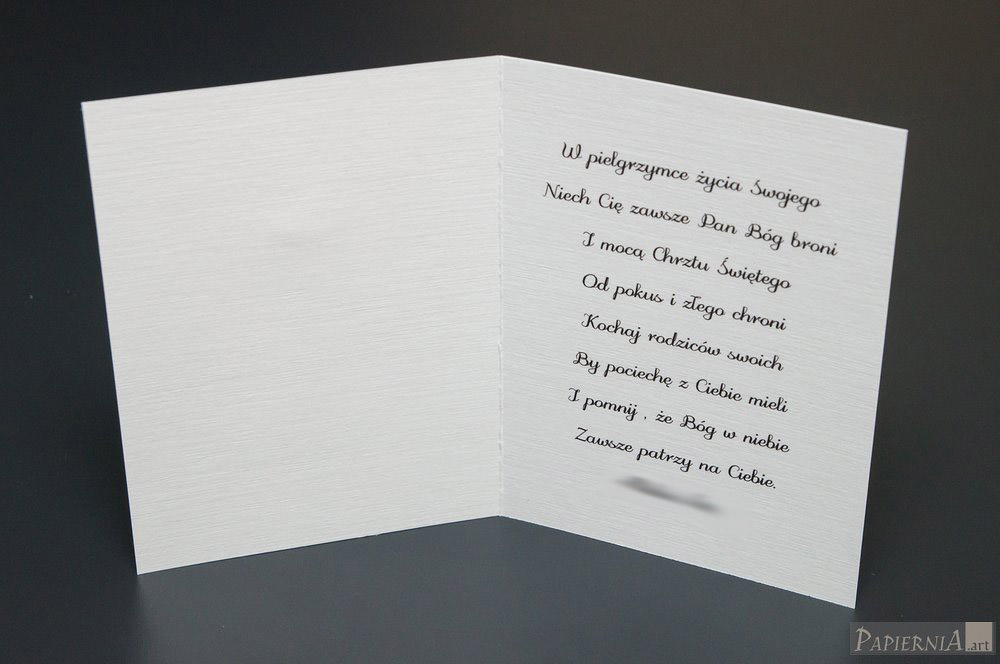 W pielgrzymce życia Swojego
Niech Cię zawsze Pan Bóg broni
I mocą Chrztu Świętego
Od pokus i złego chroni
Kochaj rodziców swoich
By pociechę z Ciebie mieli
I pomnij , że Bóg w niebie
Zawsze patrzy na Ciebie.
PAPIERNIA.art